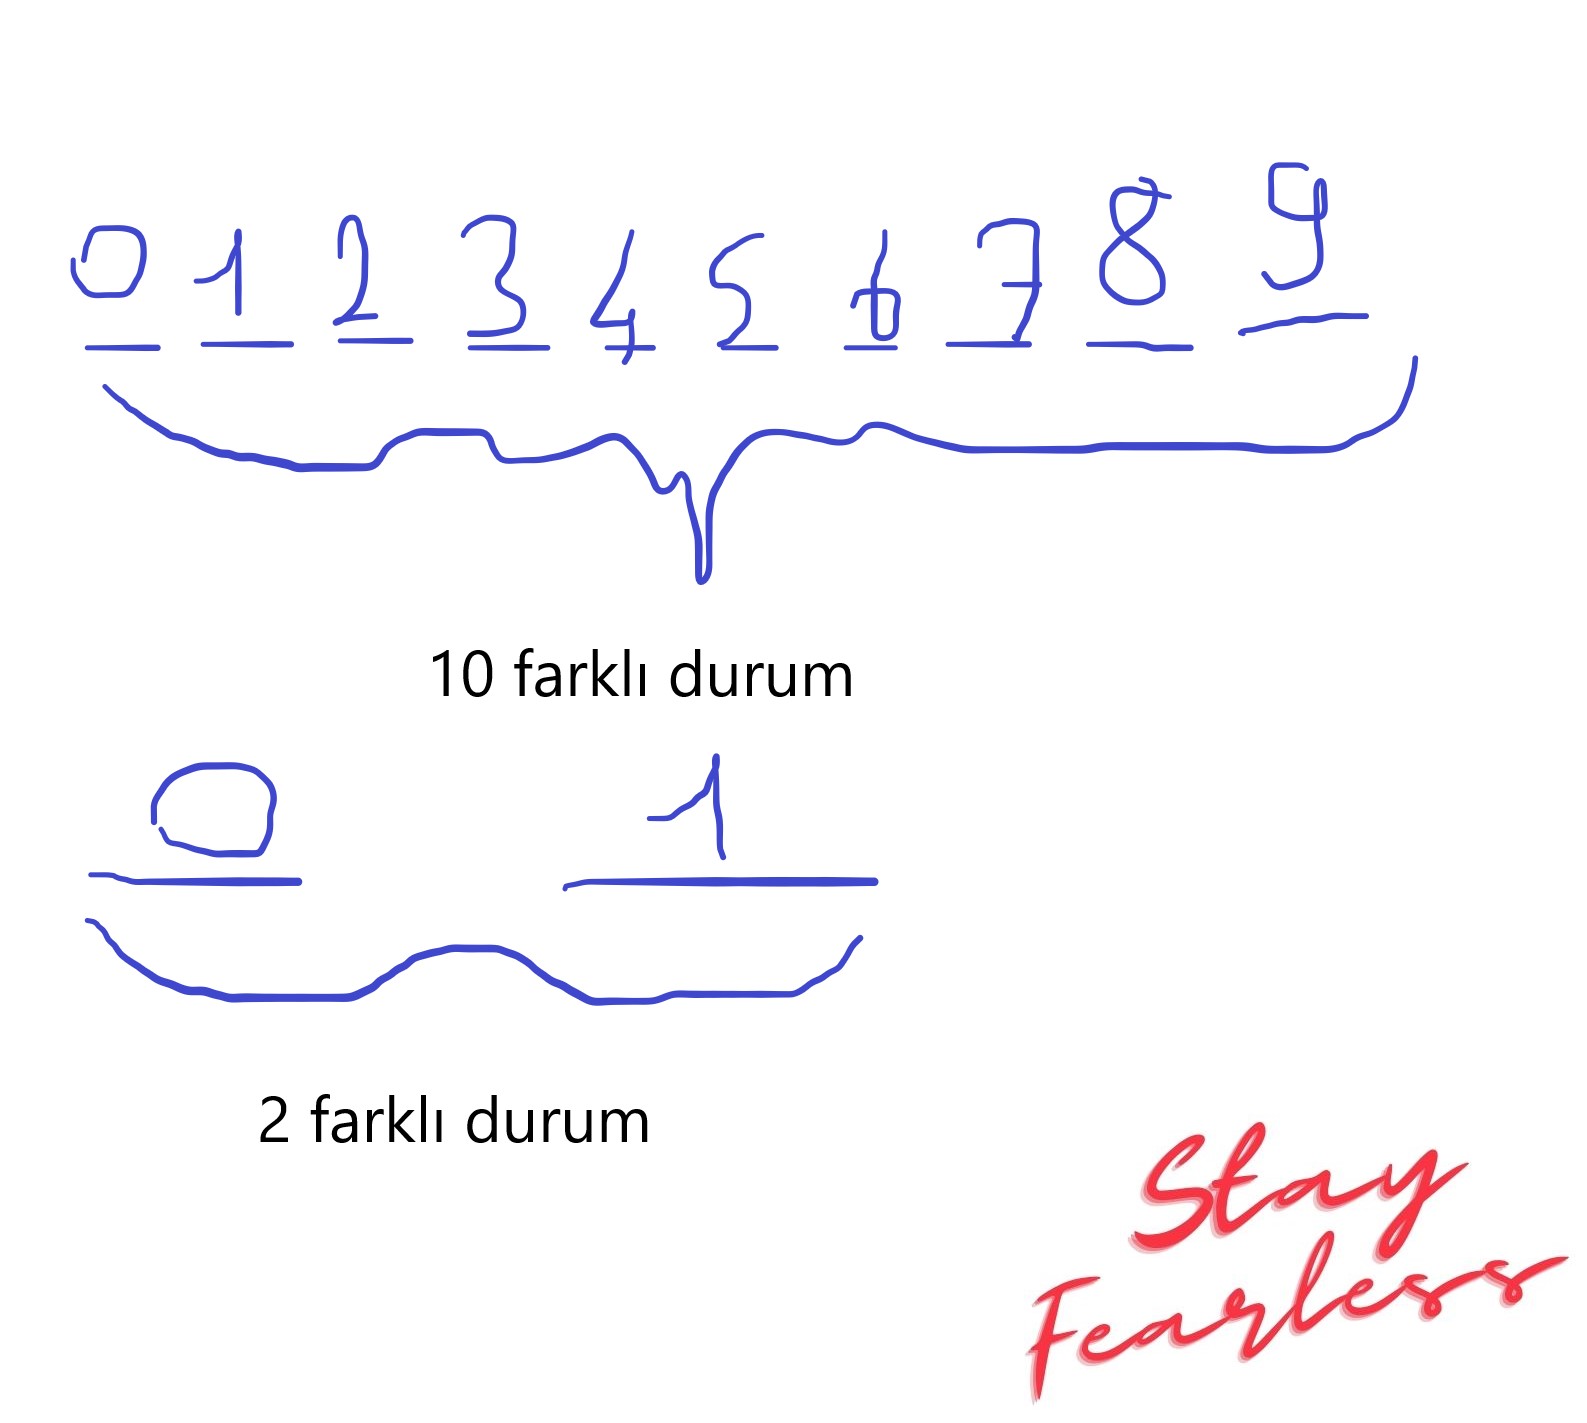 0 1 2 3 4 5 6 7 8 9
10 farklı durum
0 1
2 farklı durum
Stay
Fearless